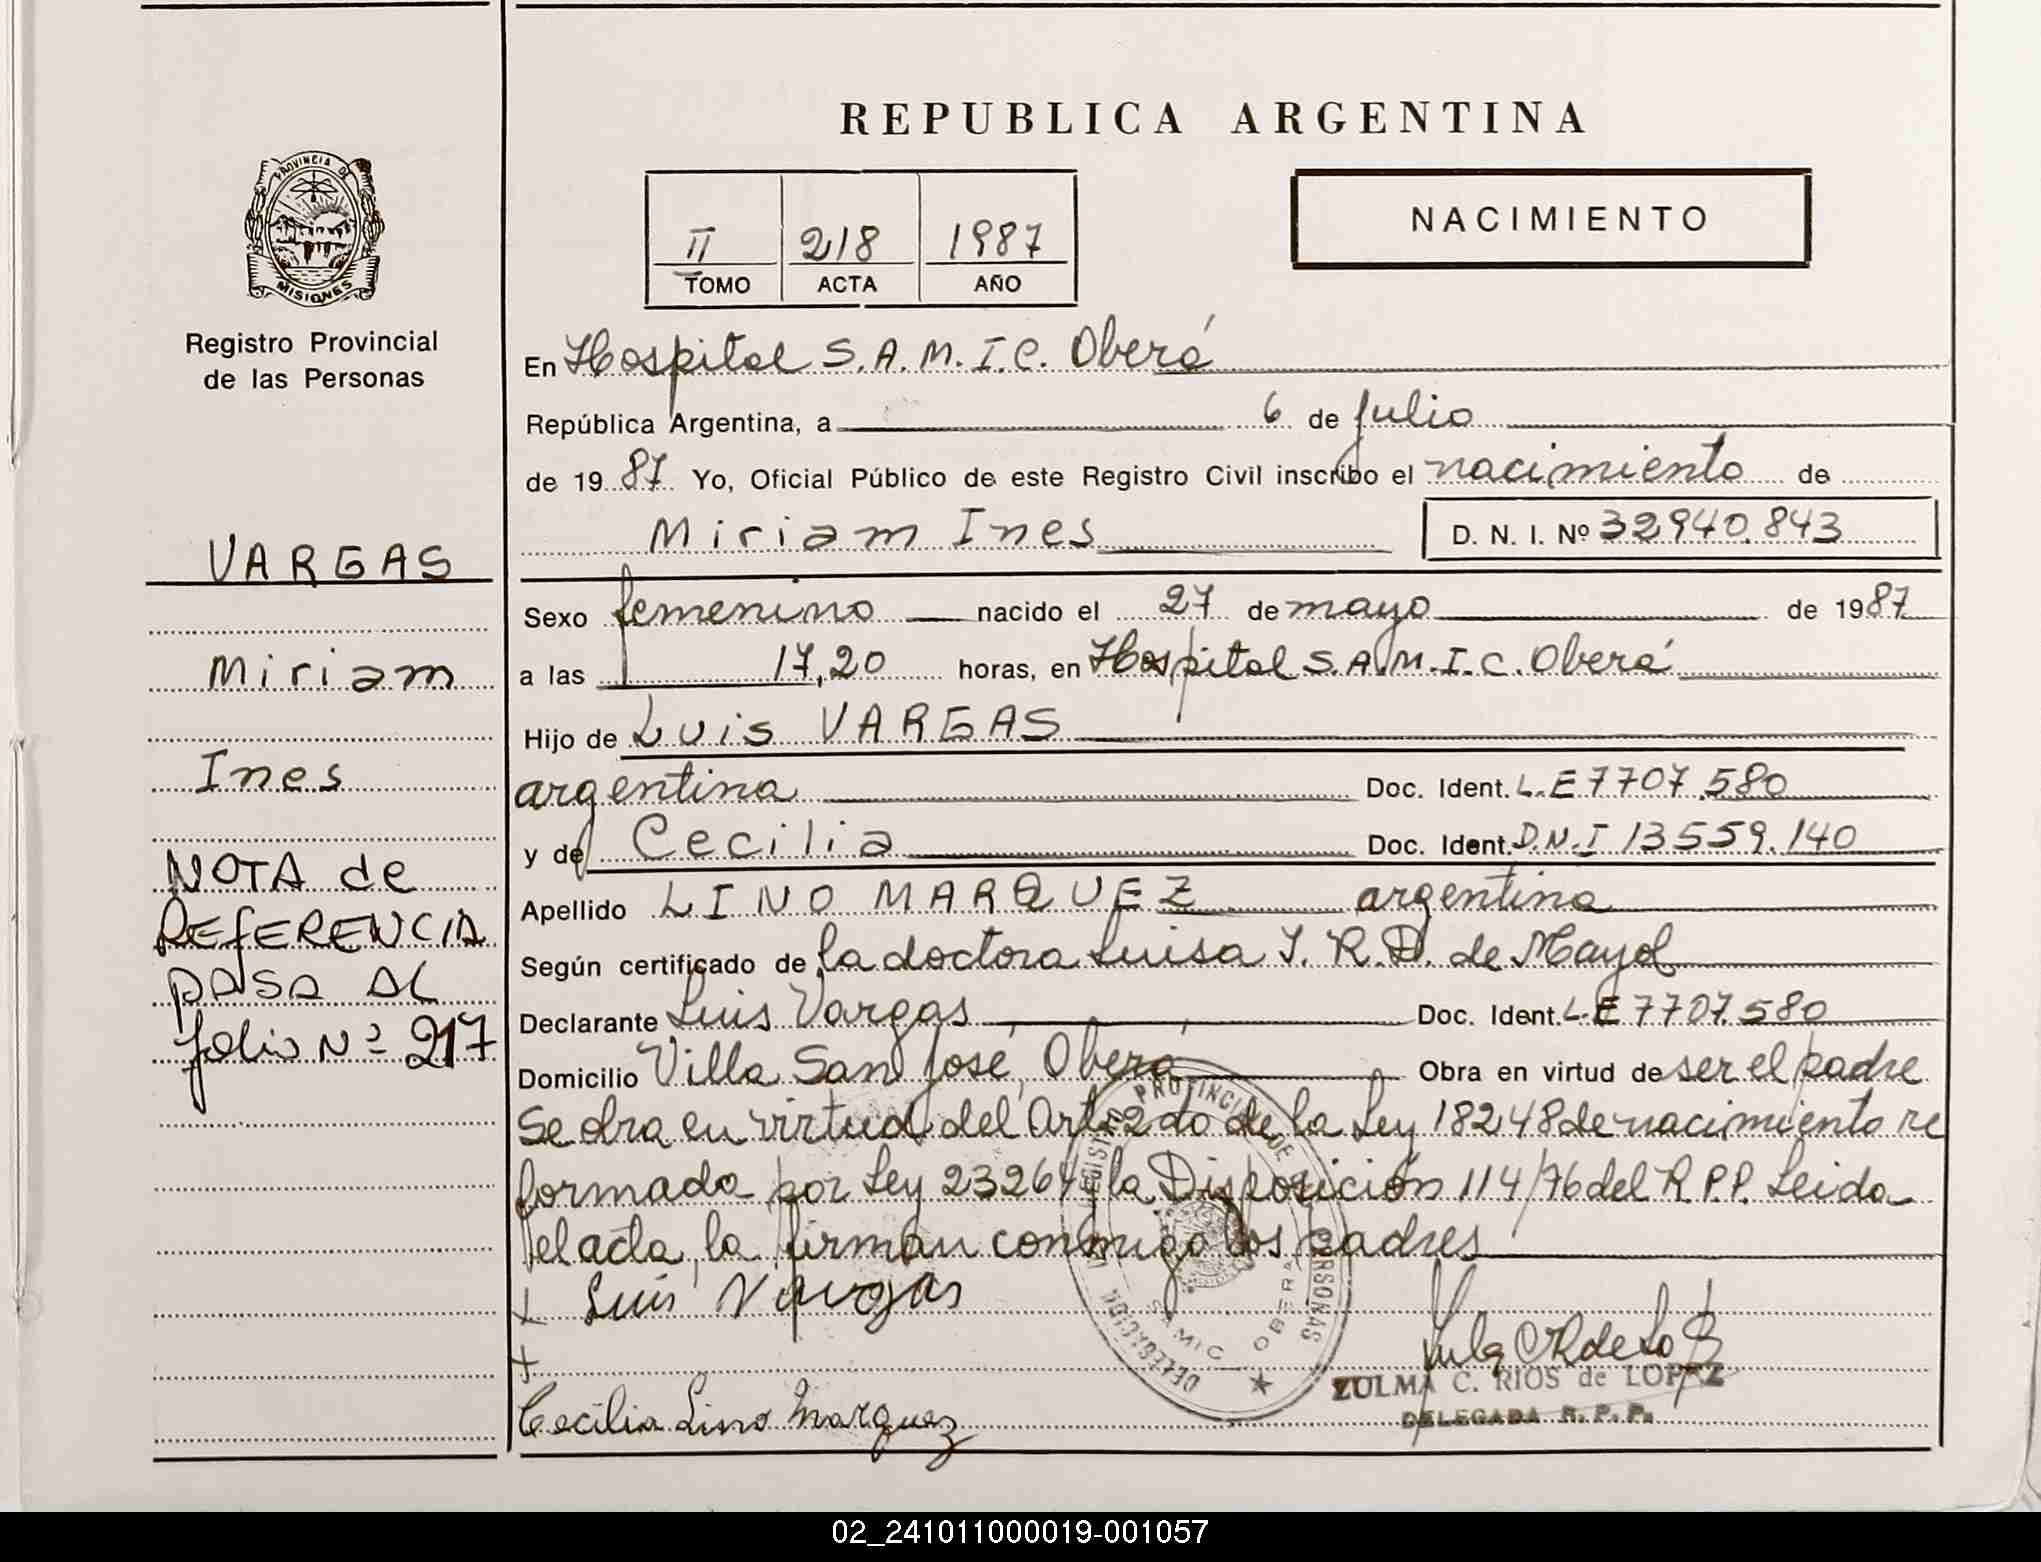 REPUBLICA ARGENTINA
PROVINCIA DE
MISIONES
Registro Provincial
de las Personas
II 218 1987
TOMO ACTA AÑO
NACIMIENTO
En Hospital S.A.M.I.C. Oberá
República Argentina, a 6 de julio
de 1987 Yo, Oficial Público de este Registro Civil inscribo el nacimiento de
Miriam Ines D. N. I. Nº 32940.843
VARGAS
Miriam
Ines
NOTA de
REFERENCIA
PASA AL
folio Nº 217
Sexo femenino nacido el 27 de mayo de 1987
a las 17,20 horas, en Hospital S.A.M.I.C. Oberá
Hijo de Luis VARGAS
argentina Doc. Ident. L.E 7707.580
y de Cecilia Doc. Ident. D.N.I 13559.140
Apellido LINO MARQUEZ argentina
Según certificado de la doctora Luisa I. R. D. de Mayol
Declarante Luis Vargas Doc. Ident. L.E 7707.580
Domicilio Villa San José, Oberá Obra en virtud de ser el padre
Se obra en virtud del Art. 2do de la Ley 18248 de nacimiento re
formada por Ley 23264 y la Disposición 114/76 del R.P.P. Leida
el acta, la firman conmigo los padres
+ Luis Vargas
+
Cecilia Lino Marquez
REGISTRO PROVINCIAL DE LAS PERSONAS
DELEGACION
SAMIC OBERA
ZULMA C. RIOS de LOPEZ
DELEGADA R. P. P.
02_241011000019-001057